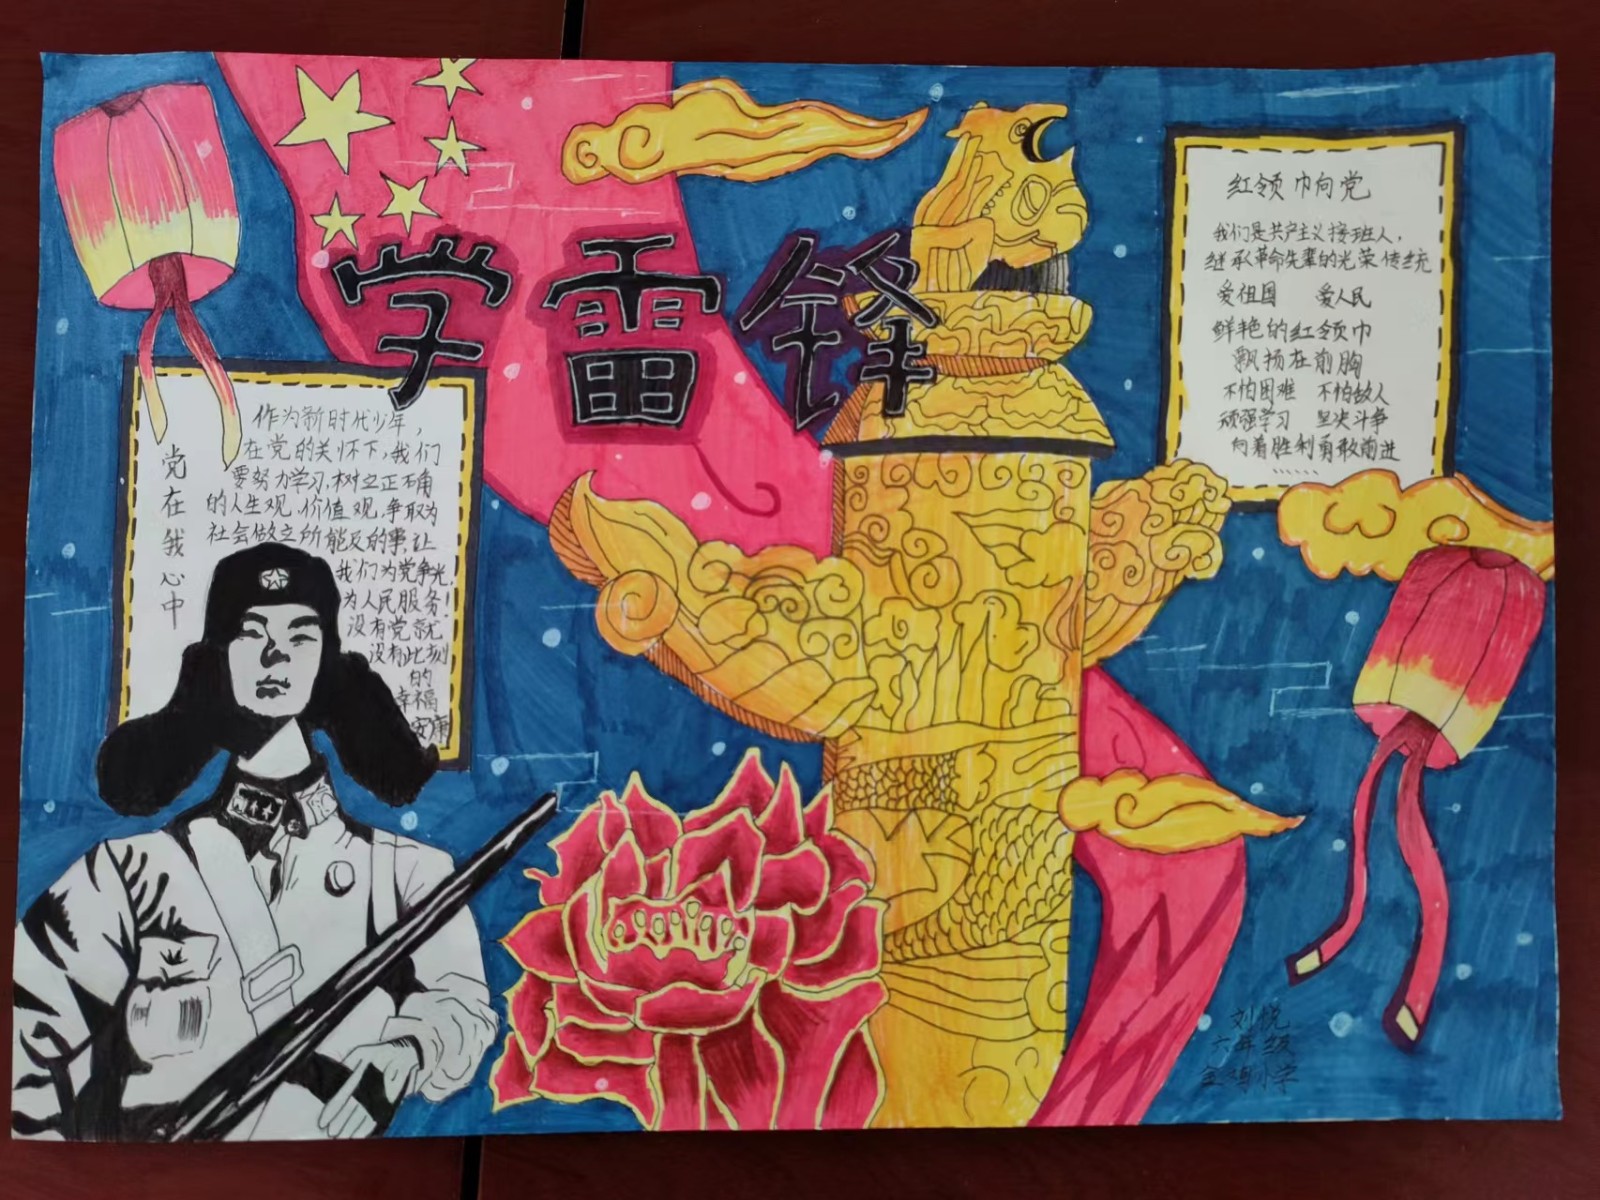 学雷锋
党在我心中
作为新时代少年，
在党的关怀下，我们
要努力学习，树立正确
的人生观，价值观，争取为
社会做立所能及的事，让
我们为党争光，
为人民服务！
没有党就
没有此刻
的
幸福
安康
红领巾向党
我们是共产主义接班人，
继承革命先辈的光荣传统
爱祖国 爱人民
鲜艳的红领巾
飘扬在前胸
不怕困难 不怕敌人
顽强学习 坚决斗争
向着胜利勇敢前进
......
刘悦
六年级
金鸡小学